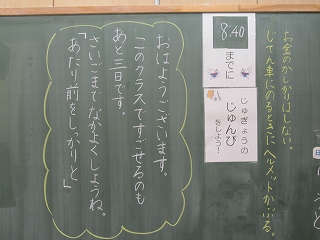 お金のかしかりはしない。
じてん車にのるときはヘルメットかぶる。
8:40
までに
じゅぎょうの
じゅんび
をしよう!
おはようございます。
このクラスですごせるのも
あと三日です。
さいごまでなかよくしようね。
「あたり前をしっかりと」